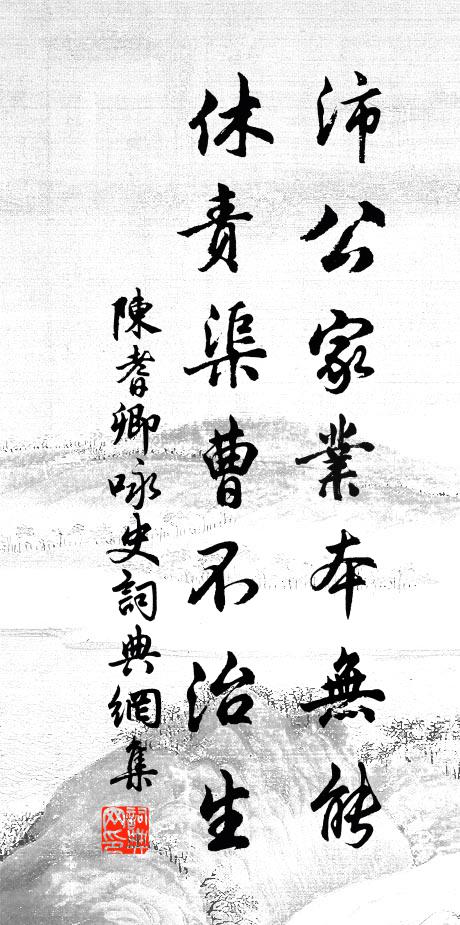 沛公家業本無能
休責渠曹不治生
陳耆卿咏史詞典網集